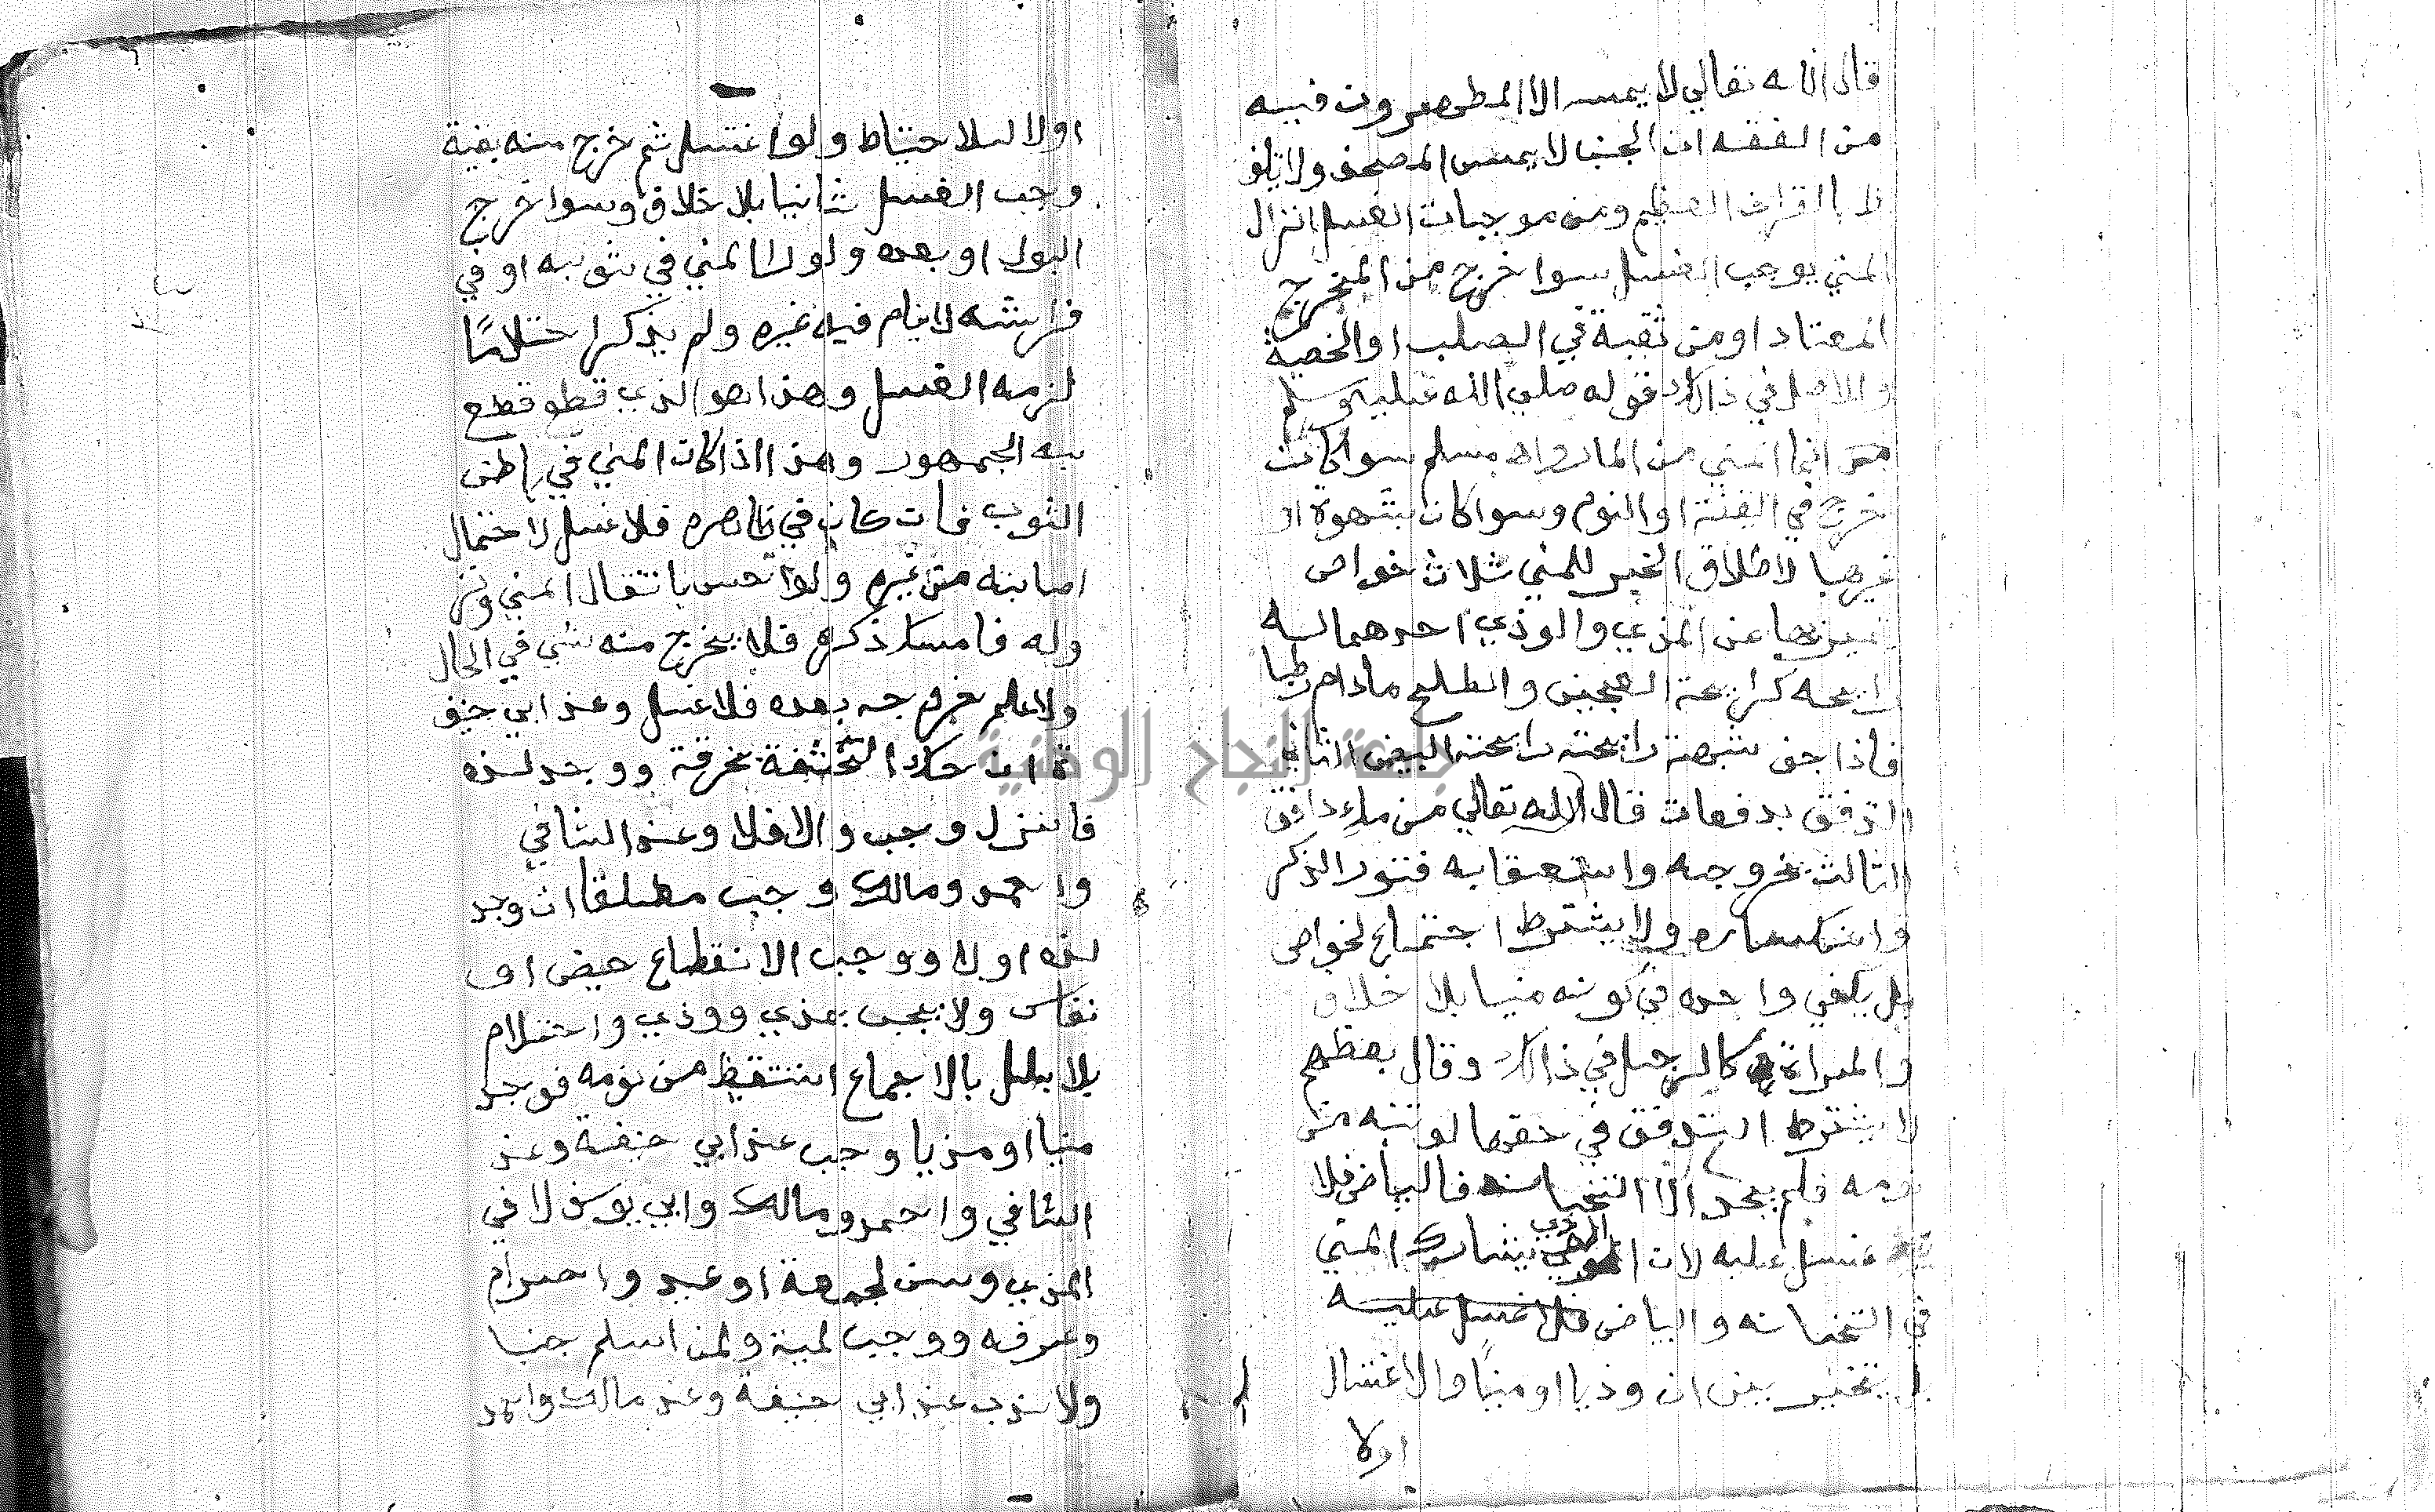 قال الله تعالي لا يمسه الا المطهرون فيه
من الفقه ان الجنب لا يمس المصحف ولا يتلف
ظ بالقران العظيم ومن موجبات الغسل انزال
المني يوجب الغسل سوا خرج من المخرج
المعتاد او من ثقبة في الصلب او الخصية
والاصل في ذالك قوله صلي الله عليه وسلم
انما المني من الما رواه مسلم سوا كانت
خرج في اليقظة او النوم وسوا كان بشهوة او
غيرها لاطلاق الخبر للمني ثلاث خواص
تميزها عن المذي والوذي احدهما له
رايحه كرايحة العجين والطلع مادام رطبا
فاذا جف شبهة رايحته رايحته البيض الثاني
التدفق بدفعات قال الله تعالي من ماء دافق
الثالث بخروجه واستعقابه فتور الذكر
وانكساره ولا يشترط اجتماع لخواص
بل يكفي واحده في كونه منيا بلا خلاف
والمراة كالرجل في ذالك وقال بعظهم
لا يشترط التدفق في حقها لو تنبه من
نومه فلم يجد الا التخانه فالبياض فلا
غسل عليه لان المذي الوذي يشارك المني
في التخانه والبياض فلا غسل عليه
بل يتخير بين ان وذيا او منيا والاغتسال
اولا
اولا للاحتياط ولو اغتسل ثم خرج منه بقية
وجب الغسل ثانيا بلا خلاف وسوا خرج
البول او بعده ولو راا المني في ثوبه او في
فراشه لا ينام فيه غيره ولم يذكر احتلاما
لزمه الغسل وهذا هو الذي قطو قطع
به الجمهور وهذا اذا كان المني في باطن
الثوب فان كان في ظاهره فلا غسل لاحتمال
اصابته من غيره ولو احس بانتقال المني ونز
وله فامسك ذكره فلا يخرج منه شي في الحال
ولا علم خروجه بعده فلا غسل وعند ابي حنيف
ة ان حك الحشفة بخرقة ووجد لذه
فانزل وجب والا فلا وعند الشافي
واحمد ومالك وجب مطلقا ان وجد
لذه او لا ووجب الانقطاع حيض او
نفاس ولا يجب بمذي ووذي واحتلام
بلا بلل بالاجماع استقظ من نومه فوجد
منيا او مذيا وجب عند ابي حنيفة وعند
الشافي واحمد ومالك وابي يوسف لا في
المذي وسن لجمعة او عيد واحرام
وعرفه ووجب لميتة ولمن اسلم جنبا
ولا ندب عند ابي حنيفة وعند مالك واحمد
جامعة النجاح الوطنية